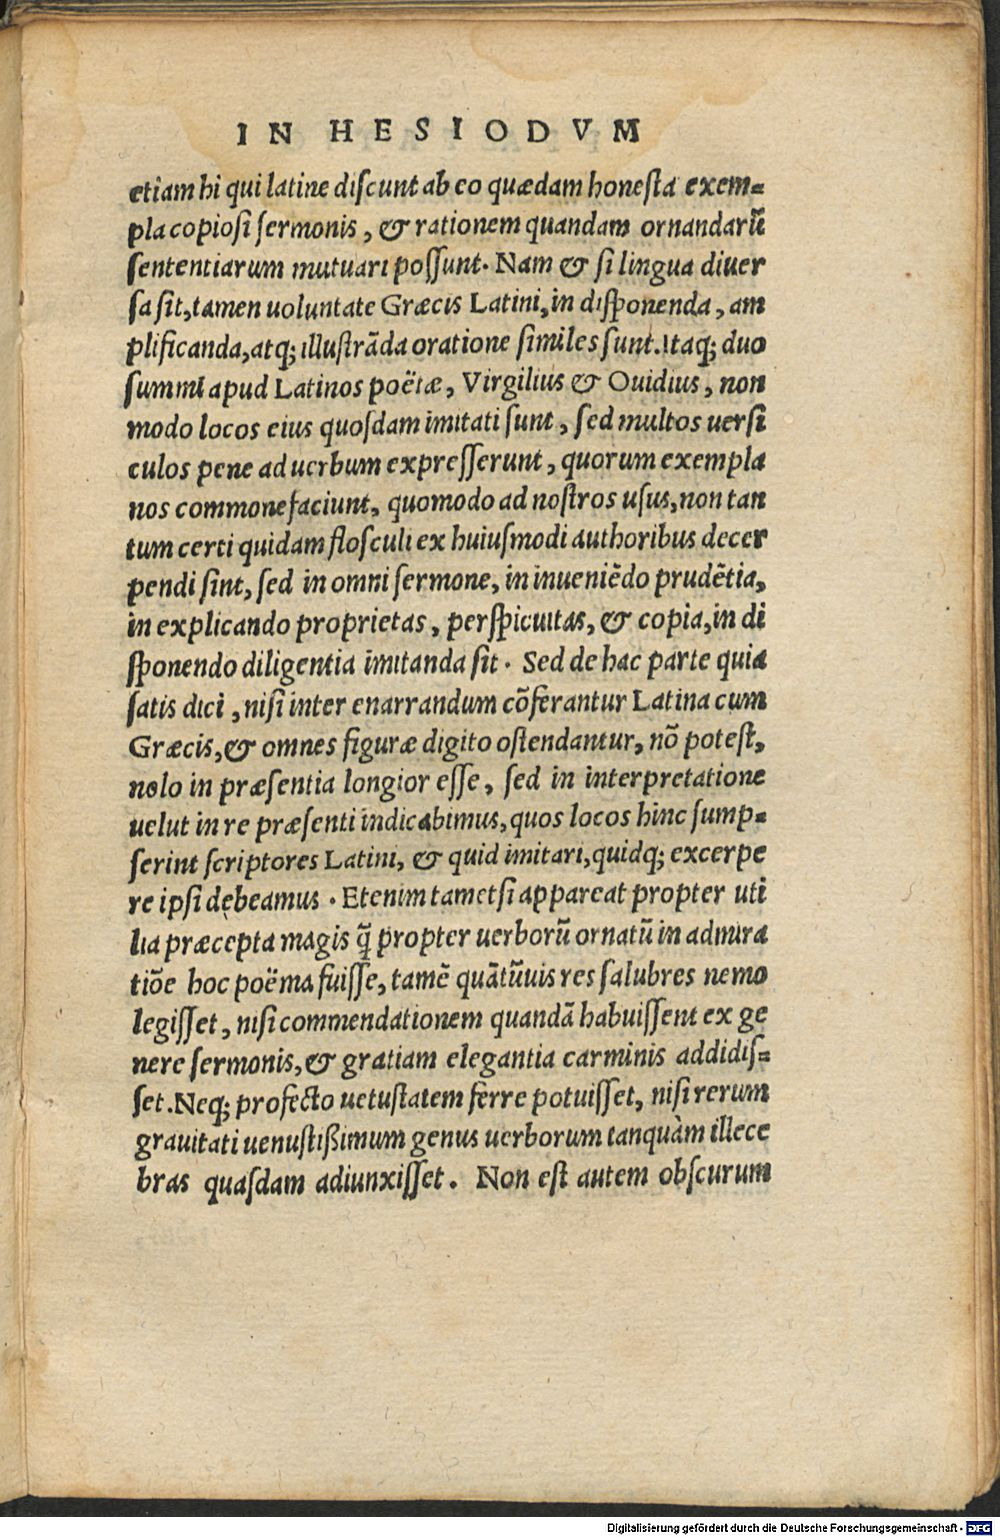 IN HESIODVM
etiam hi qui latine discunt ab eo quædam honesta exem-
pla copiosi sermonis, & rationem quandam ornandarũ
sententiarum mutuari possunt. Nam & si lingua diuer
sa sit, tamen uoluntate Græcis Latini, in disponenda, am
plificanda, atq; illustrãda oratione similes sunt. Itaq; duo
summi apud Latinos poëtæ, Virgilius & Ouidius, non
modo locos eius quosdam imitati sunt, sed multos uersi
culos pene ad uerbum expresserunt, quorum exempla
nos commonefaciunt, quomodo ad nostros usus, non tan
tum certi quidam flosculi ex huiusmodi authoribus decer
pendi sint, sed in omni sermone, in inueniẽdo prudẽtia,
in explicando proprietas, perspicuitas, & copia, in di
sponendo diligentia imitanda sit. Sed de hac parte quia
satis dici, nisi inter enarrandum cõferantur Latina cum
Græcis, & omnes figuræ digito ostendantur, nõ potest,
nolo in præsentia longior esse, sed in interpretatione
uelut in re præsenti indicabimus, quos locos hinc sump-
serint scriptores Latini, & quid imitari, quidq; excerpe
re ipsi debeamus. Etenim tametsi appareat propter uti
lia præcepta magis q̃ propter uerborũ ornatũ in admira
tiõe hoc poëma fuisse, tamẽ quãtũuis res salubres nemo
legisset, nisi commendationem quandã habuissent ex ge
nere sermonis, & gratiam elegantia carminis addidis-
set. Neq; profecto uetustatem ferre potuisset, nisi rerum
grauitati uenustißimum genus uerborum tanquàm illece
bras quasdam adiunxisset. Non est autem obscurum
Digitalisierung gefördert durch die Deutsche Forschungsgemeinschaft - DFG